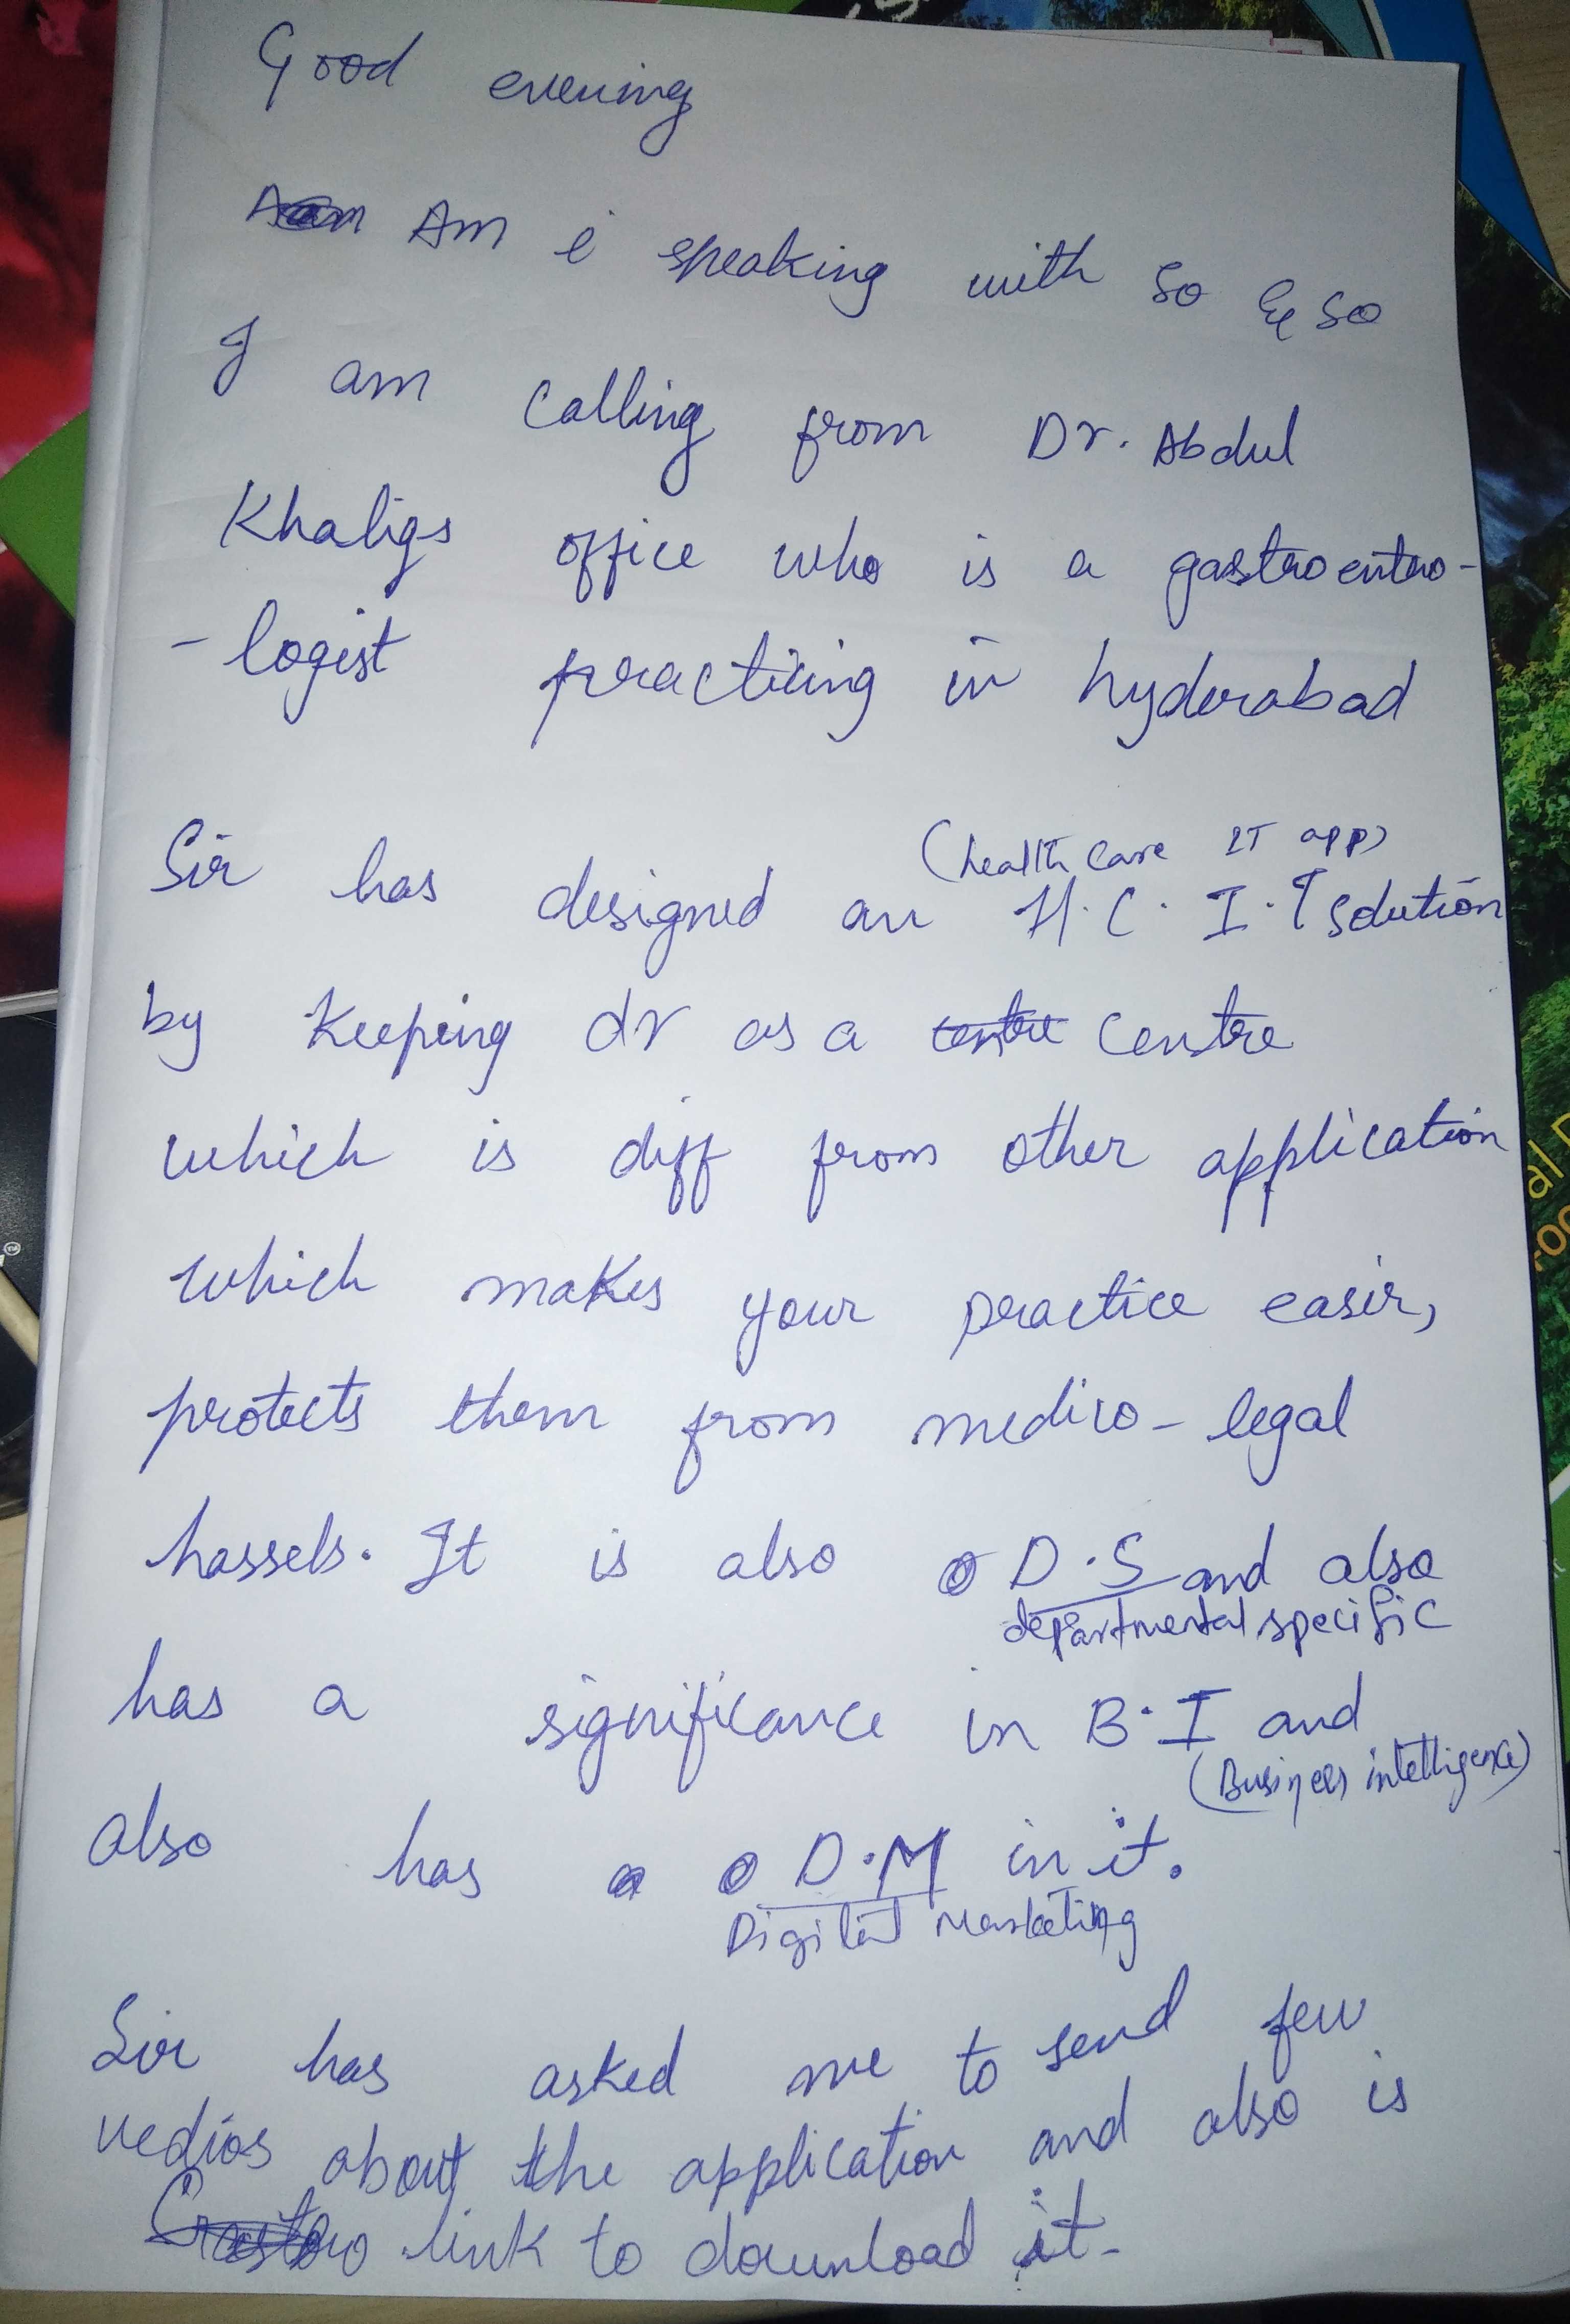 Good evening
Am i speaking with so & so
I am calling from Dr. Abdul
Khaliqs office who is a gastroentro-
-logist practicing in hyderabad
(health care IT app)
Sir has designed an H.C.I.T solution
by keeping dr as a centre centre
which is diff from other application
which makes your practice easir,
protects them from medico-legal
hassels. It is also D.S and also
departmental specific
has a significance in B.I and
(Business intelligence)
also has a D.M in it.
Digital Marketing
Sir has asked me to send few
vedios about the application and also is
link to download it.